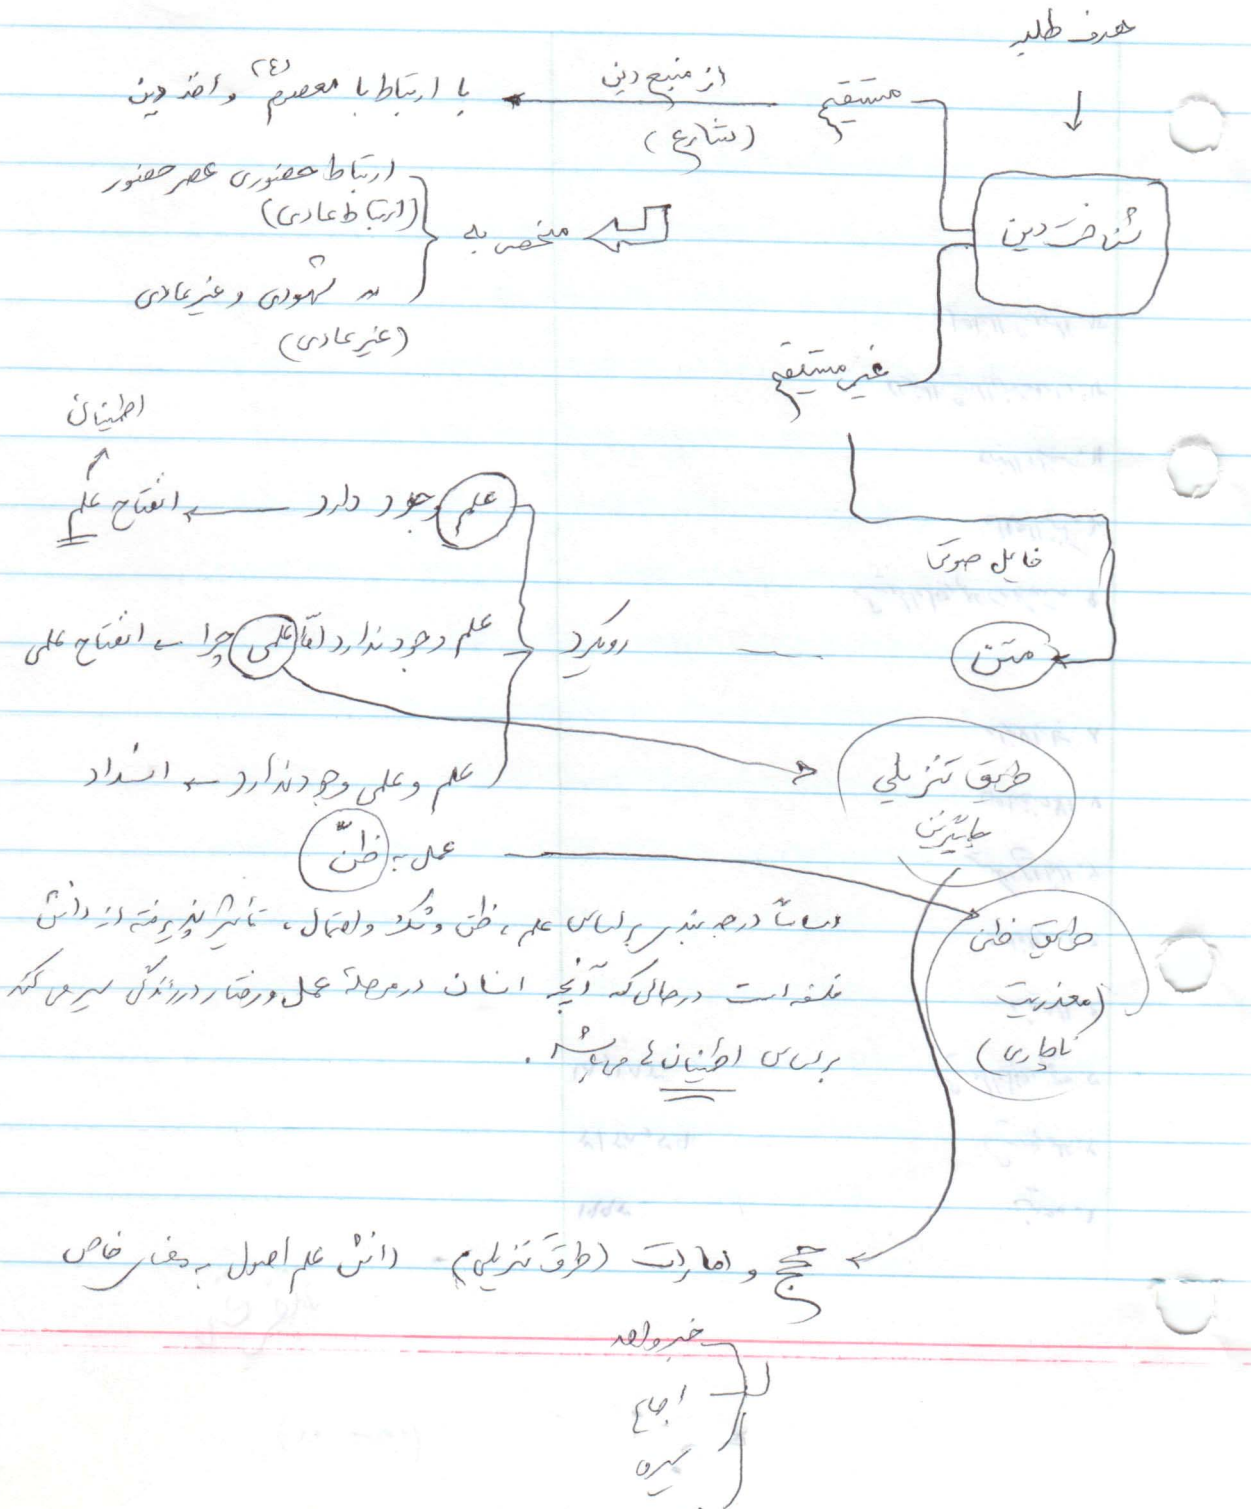 هدف طلبه
شناخت دین
مستقیم
از منبع دین
(شارع)
با ارتباط با معصوم (ع) و اخذ دین
منحصر به
ارتباط حضوری عصر حضور
(ارتباط عادی)
شهودی و غیرعادی
(غیرعادی)
غیر مستقیم
فایل صوتی
متن
رویکرد
علم وجود دارد ← انفتاح علم
اطمینان
علم وجود ندارد امّا علمی چرا ← انفتاح علمی
علم و علمی وجود ندارد ← انسداد
عمل به ظنّ
طریق تنزیلی
جایگزین
طریق ظنی
(معذریت
ناچاری)
اساساً درجه بندی براساس علم، ظن و شک و احتمال، تأثیر پذیرفته از دانش
فلسفه است درحالی که آنچه انسان در مرحلهٔ عمل و رفتار در زندگی سیر می کند
براساس اطمینان ها می باشد.
حجج و امارات (طرق تنزیلی) دانش علم اصول به معنای خاص
خبر واحد
اجماع
سیره